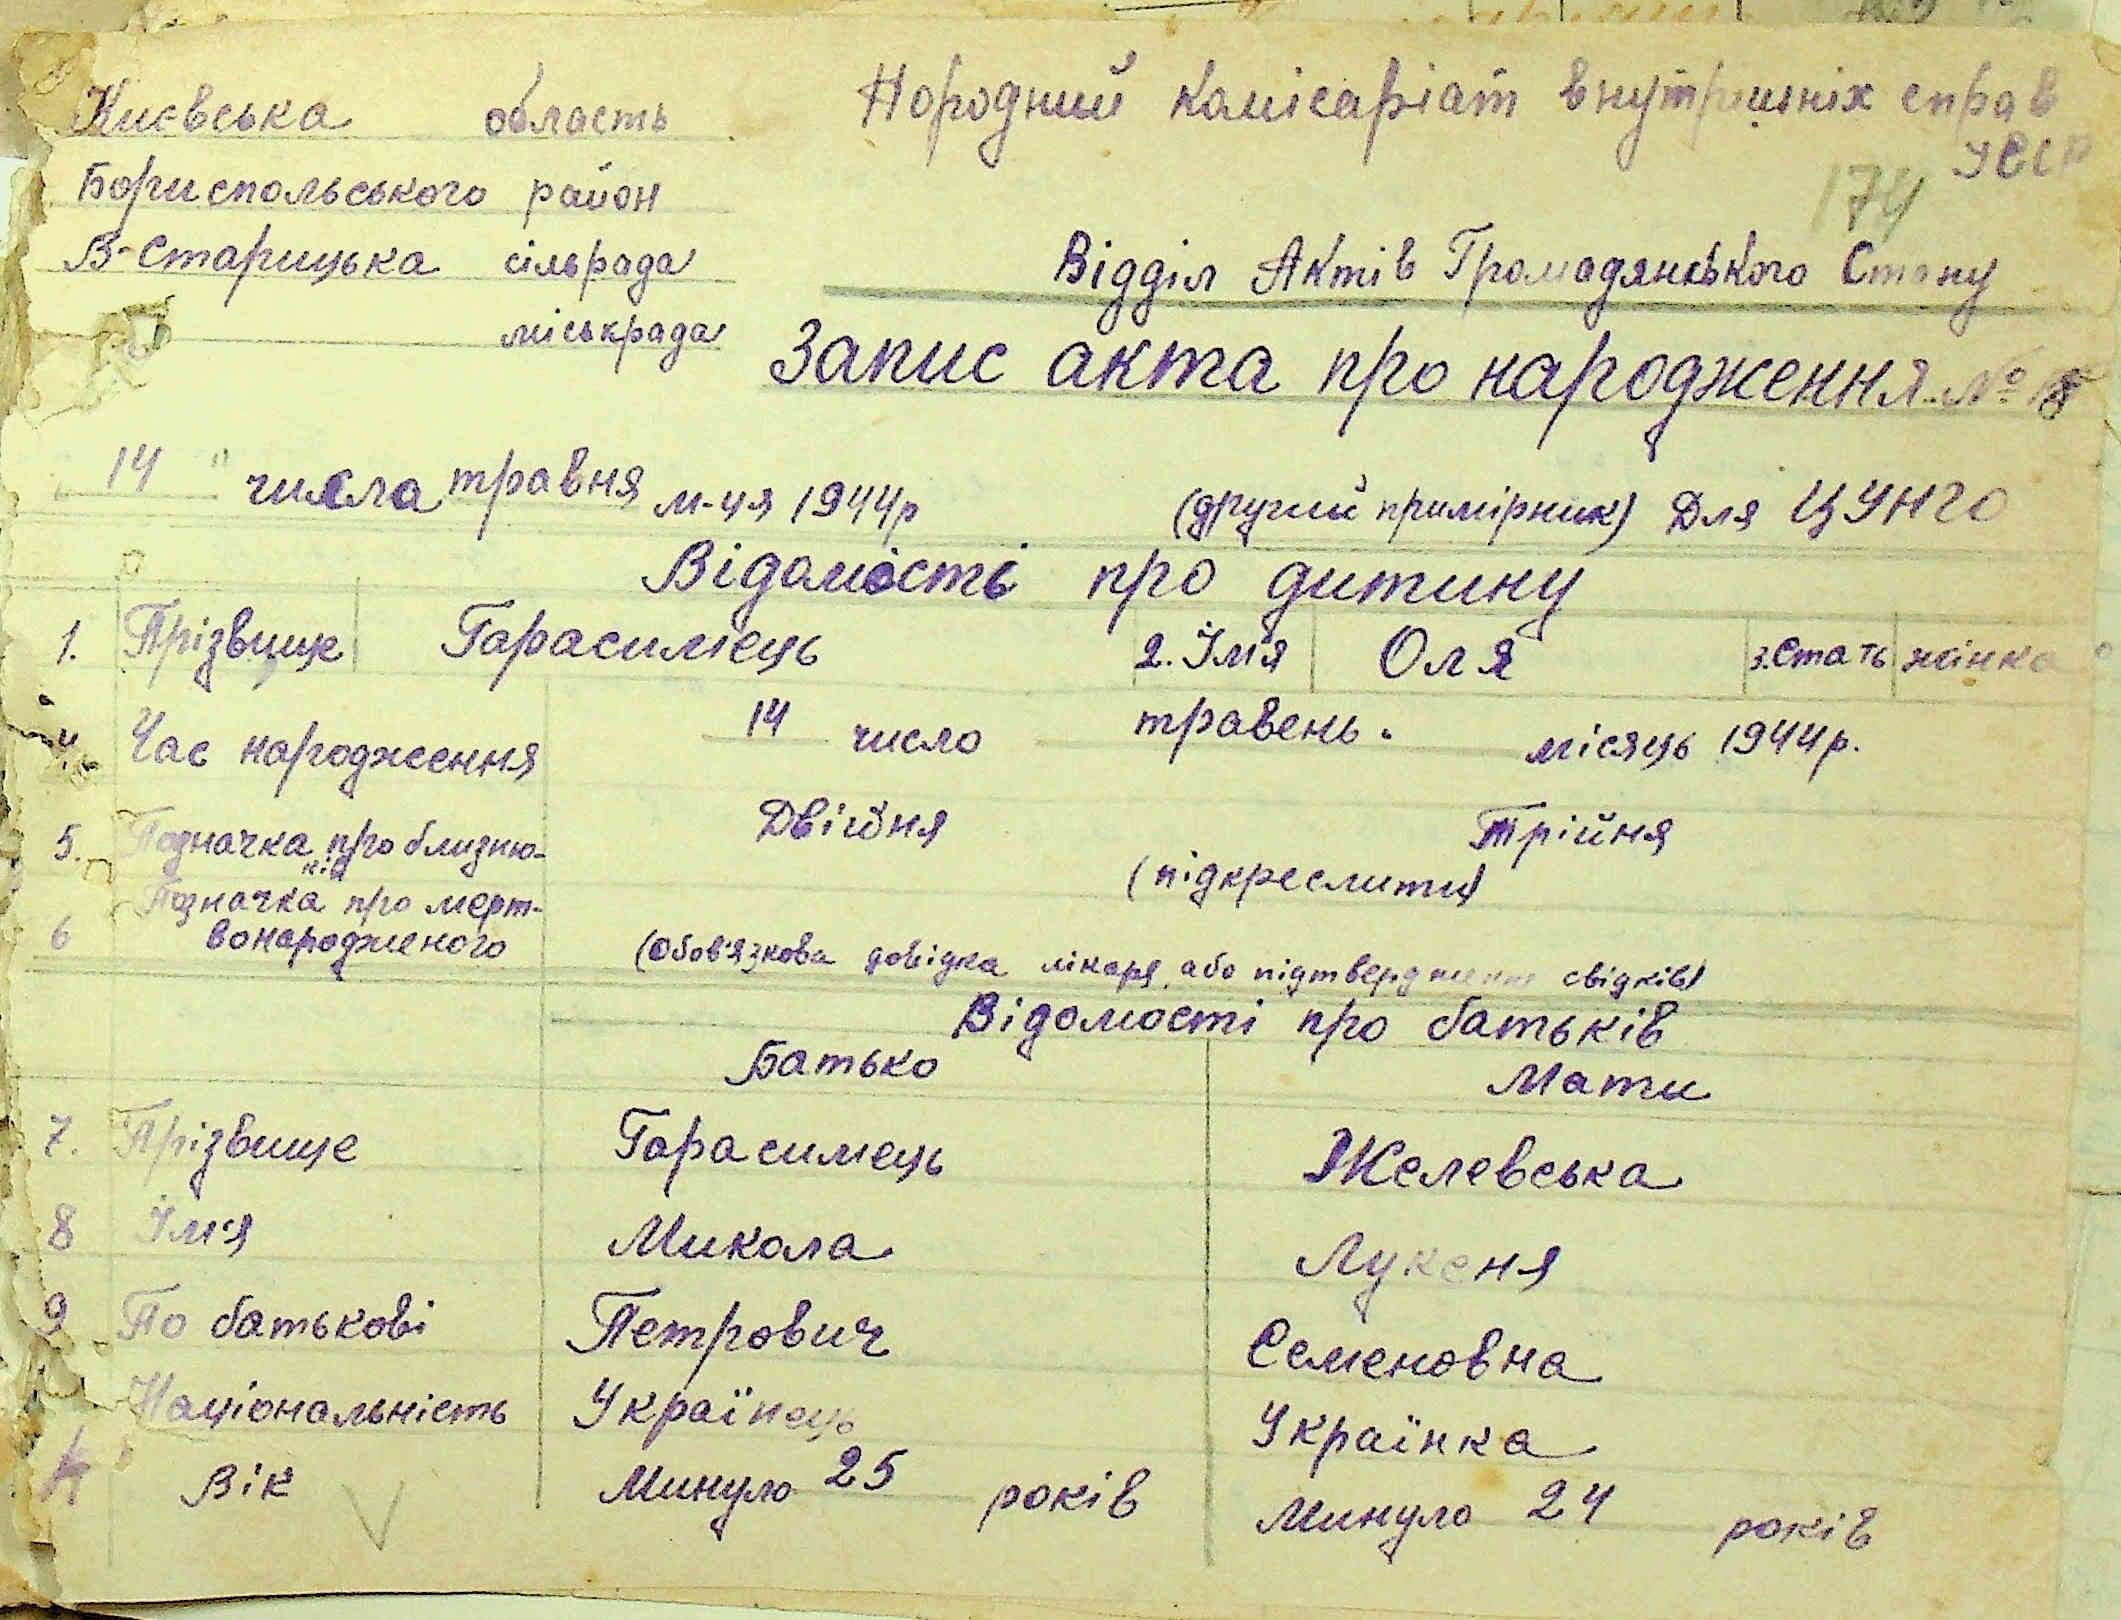 Києвська область
Бориспольського район
В-Старицька сільрада
міськрада
Народний комісаріат внутрішніх справ
УССР
174
Відділ Актів Громадянського Стану
Запис акта про народження №
14 " числа травня м-ця 1944р (другий примірник) Для ЦУНГО
Відомості про дитину
1. Прізвище Гарасимець 2. Імя Оля 3. Стать жінка
4. Час народження 14 число травень. місяць 1944р.
5. Позначка про близню-
ків Двійня Трійня
(підкреслити)
6 Позначка про мерт-
вонародженого (Обов'язкова довідка лікаря або підтвердження свідків)
Відомості про батьків
Батько Мати
7. Прізвище Гарасимець Желевська
8 Ім'я Микола Лукеня
9 По батькові Петрович Семеновна
Національність Українець Українка
Вік Минуло 25 років Минуло 24 років